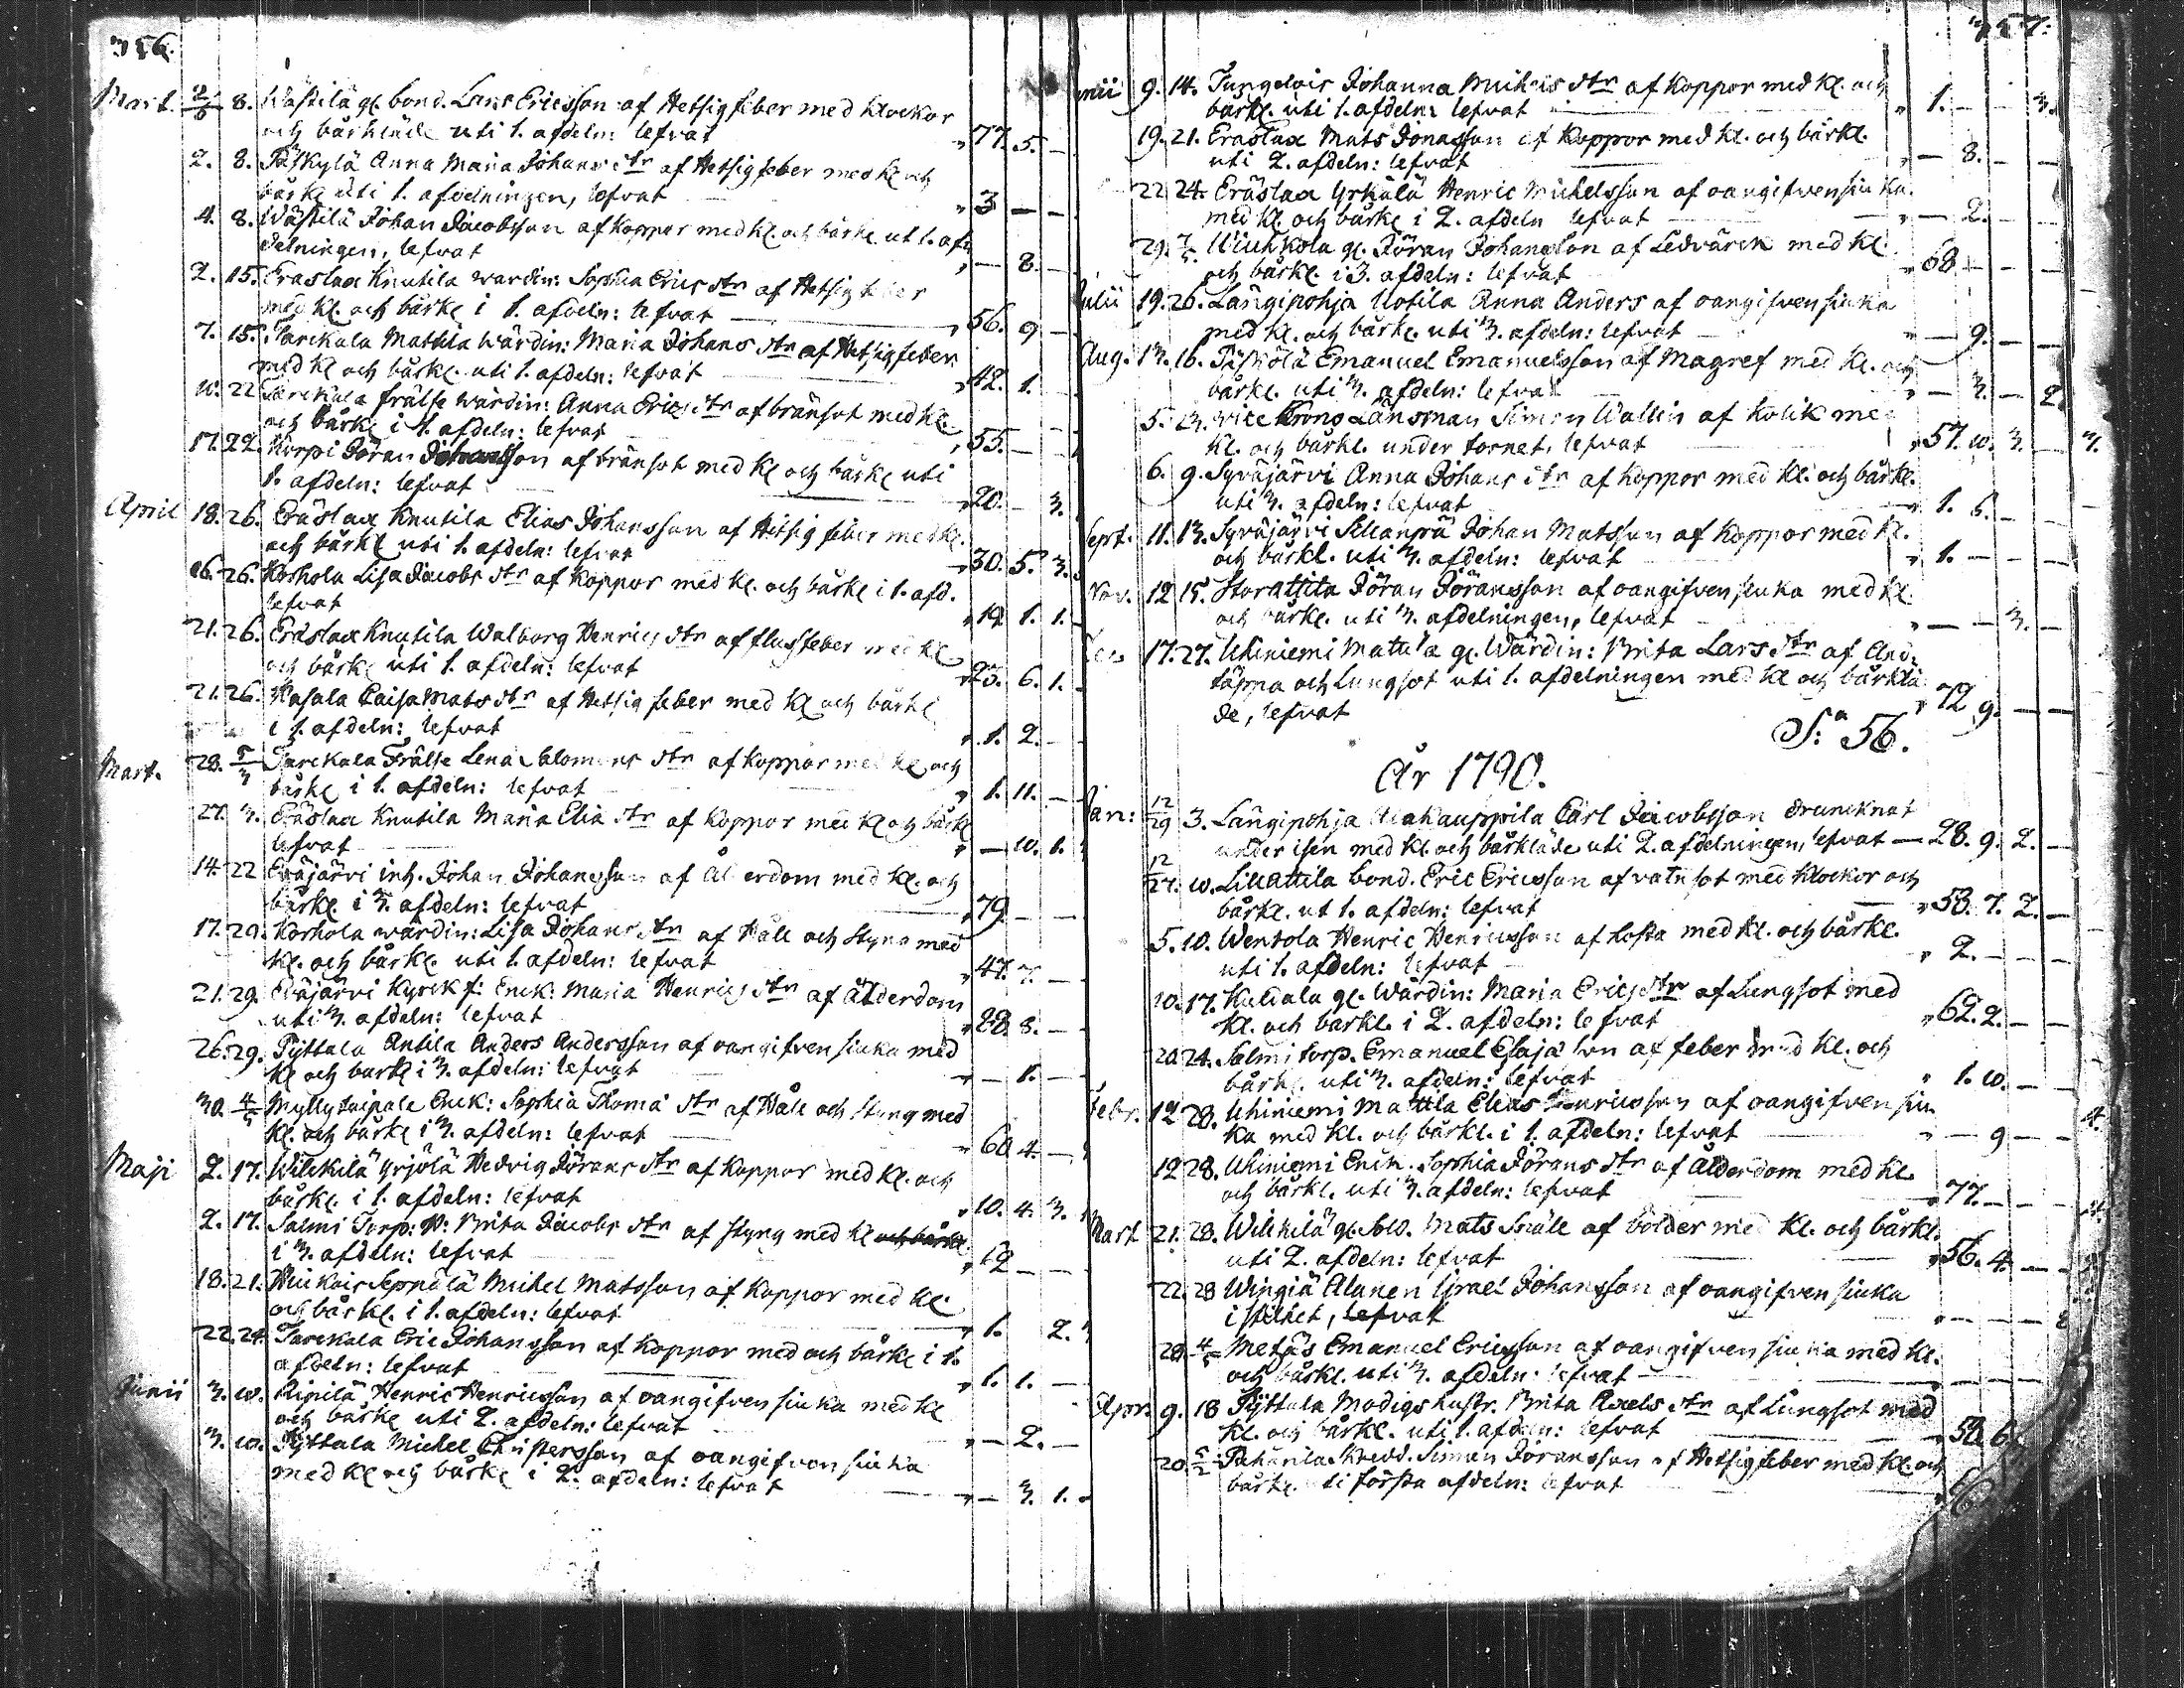 356.
Mart. 8. Wästilä gl. bond. Lars Ericsson af Hetsigfeber med klockor
och bårkläde uti 1. afdeln: lefvat 77. 5. —
2. 8. Päskylä Anna Maria Johans dtr af Hetsigfeber med kl. och
bårkl uti 1. afdelningen, lefvat 3 — —
4. 8. Wästilä Johan Jacobsson af koppor med kl. och bårkl. ut 1. af:
delningen, lefvat — 8. —
2. 15. Eräslax Knutila wärdin: Sophia Erics dtr af Hetsigfeber
med kl. och bårkl i 1. afdeln: lefvat 56. 9 —
7. 15. Jarckala Mattila wärdin: Maria Johans dtr af Hetsigfeber
med kl och bårkl. uti 1. afdeln: lefvat 42. 1.
10. 22 Jarckala frälse wärdin: Anna Erics dtr af bränsot med kl.
och bårkl i 1. afdeln: lefvat 55. —
17. 22. Korpi Jöran Johansson af bränsot med kl och bårkl uti
1. afdeln: lefvat 20. — 3.
April 18. 26. Eräslax Knutila Elias Johansson af Hetsig feber med kl.
och bårkl uti 1. afdeln: lefvat 30. 5. 3.
16. 26. Korhola Lisa Jacobs dtr af koppor med kl. och bårkl i 1. afd.
lefvat 12 1. 1.
21. 26. Eräslax Knutila Walborg Henrics dtr af flussfeber med kl
och bårkl uti 1. afdeln: lefvat 23. 6. 1.
21. 26. Kasala Caisa Mats dtr af Hetsig feber med kl och bårkl
i 1. afdeln: lefvat 1. 2.
Mart. 28. 5/3 Jarckala Frälse Lena Salomons dtr af koppor med kl och
bårkl i 1. afdeln: lefvat 1. 11. —
27. 3. Eräslax Knutila Maria Elia dtr af koppor med kl och bårkl
lefvat — 10. 1.
14. 22 Eräjärvi inh. Johan Johansson af Ålderdom med kl. och
bårkl. i 3. afdeln: lefvat 79 — —
17. 29. Korhola wärdin: Lisa Johans dtr af Håll och Styng med
kl. och bårkl. uti 1. afdeln: lefvat 47. 7. —
21. 29. Eräjärvi Kyrck f: Enck: Maria Henrics dtr af Ålderdom
uti 3. afdeln: lefvat 8. —
26. 29. Pyttala Antila Anders Andersson af oangifven siuka med
kl och bårkl i 3. afdeln: lefvat — 1. —
30. 4/5 Myllytaipale Enck: Sophia Thoma dtr af Håll och Styng med
kl. och bårkl i 3. afdeln: lefvat 60 4. —
Maji 2. 17. Wilckilä Yrjölä Hedvig Jörans dtr af koppor med kl. och
bårkl. i 1. afdeln: lefvat 10. 4. 3.
2. 17. Salmi Torp: Brita Jacobs dtr af styng med kl och bårkl.
i 3. afdeln: lefvat 62 — —
18. 21. Huikois Seppälä Michel Matsson af koppor med kl.
och bårkl. i 1. afdeln: lefvat 1. 2.
22. 24. Jarckala Eric Johansson af koppor med och bårkl i 1.
afdeln: lefvat 1. 1. —
Junii 3. 10. Ripilä Henric Henricsson af oangifven siuka med kl
och bårkl uti 2. afdeln: lefvat — 2. —
3. 10. Pyttala Michel Christersson af oangifven siuka
med kl och bårkl i 2. afdeln: lefvat — 3. 1.
357.
9. 14. Jungelois Johanna Michels dtr af koppor med kl. och
bårkl. uti 1. afdeln: lefvat 1. — 3.
19. 21. Eräslax Mats Jonasson af koppor med kl. och bårkl.
uti 2. afdeln: lefvat — 8. —
22 24. Eräslax Yrkälä Henric Michelsson af oangifven siuka
med kl. och bårkl i 2. afdeln lefvat — 2. —
29. Wiuhkola gl. Jöran Johansson af Ledvärck med kl.
och bårkl. i 3. afdeln: lefvat 68. — —
Julii 19. 26. Längipohja Uotila Anna Anders af oangifven siuka
med kl. och bårkl. uti 3. afdeln: lefvat — 9. —
Aug. 13. 16. Emanuel Emanuelsson af Magref med kl. och
bårkl. uti 3. afdeln: lefvat — 3. — 2
5. 23. vice Krono Länsman Simon Wallin af kolik med
kl. och bårkl. under tornet. lefvat 57. 10. 3. —
6. 9. Syväjärvi Anna Johans dtr af koppor med kl. och bårkl.
uti 3. afdeln: lefvat 1. 6. —
Sept. 11. 13. Syväjärvi Johan Matsson af koppor med kl.
och bårkl. uti 3. afdeln: lefvat 1. —
Nov. 12 15. Storattila Jöran Jöransson af oangifven siuka med kl.
och bårkl. uti 3. afdelningen, lefvat — — 3. —
17. 27. Uhiniemi Matala gl. Wärdin: Brita Lars dtr af And:
täppa och Lungsot uti 1. afdelningen med kl och bårklä
de, lefvat 72 9. — —
S:a 56.
År 1790.
Jan: 12/29 3. Längipohja Carl Jacobsson druncknat
under isen med kl. och bårkläde uti 2. afdelningen, lefvat — 28. 9. 2. —
12/27. 10. Lillattila bond. Eric Ericsson af vatnsot med klockor och
bårkl. ut 1. afdeln: lefvat 53. 7. 2. —
5. 10. Wentola Henric Henricsson af hosta med kl. och bårkl.
uti 1. afdeln: lefvat 2. — —
10. 17. Kuliala gl. Wärdin: Maria Erics dtr af Lungsot med
kl. och bårkl. i 2. afdeln: lefvat 62. 2. — —
20. 24. Salmi torp. Emanuel Esaja son af feber med kl. och
bårkl. uti 3. afdeln: lefvat 1. 10. —
Febr. 12 28. Uhiniemi Mattila Elias Henricsson af oangifven siu
ka med kl. och bårkl. i 1. afdeln: lefvat — 9 — —
12 28. Uhiniemi Enck. Sophia Jörans dtr af Ålderdom med kl.
och bårkl. uti 3. afdeln: lefvat 77. — —
Mart 21. 28. Wilckilä gl. Sold. Mats Snäll af bölder med kl. och bårkl.
uti 2. afdeln: lefvat 56. 4. — —
22. 28 Wingiä Alanen Israel Johansson af oangifven siuka
i stilhet, lefvat — — —
29. 4/5 Metsäs Emanuel Ericsson af oangifven siuka med kl.
och bårkl. uti 3. afdeln: lefvat — — — —
Apr. 9. 18 Pyttala Modigs hustr. Brita Axels dtr af Lungsot med
kl. och bårkl. uti 1. afdeln: lefvat 50. 6.
20. Simon Jöransson af Hetsigfeber med kl. och
bårkl. uti första afdeln: lefvat